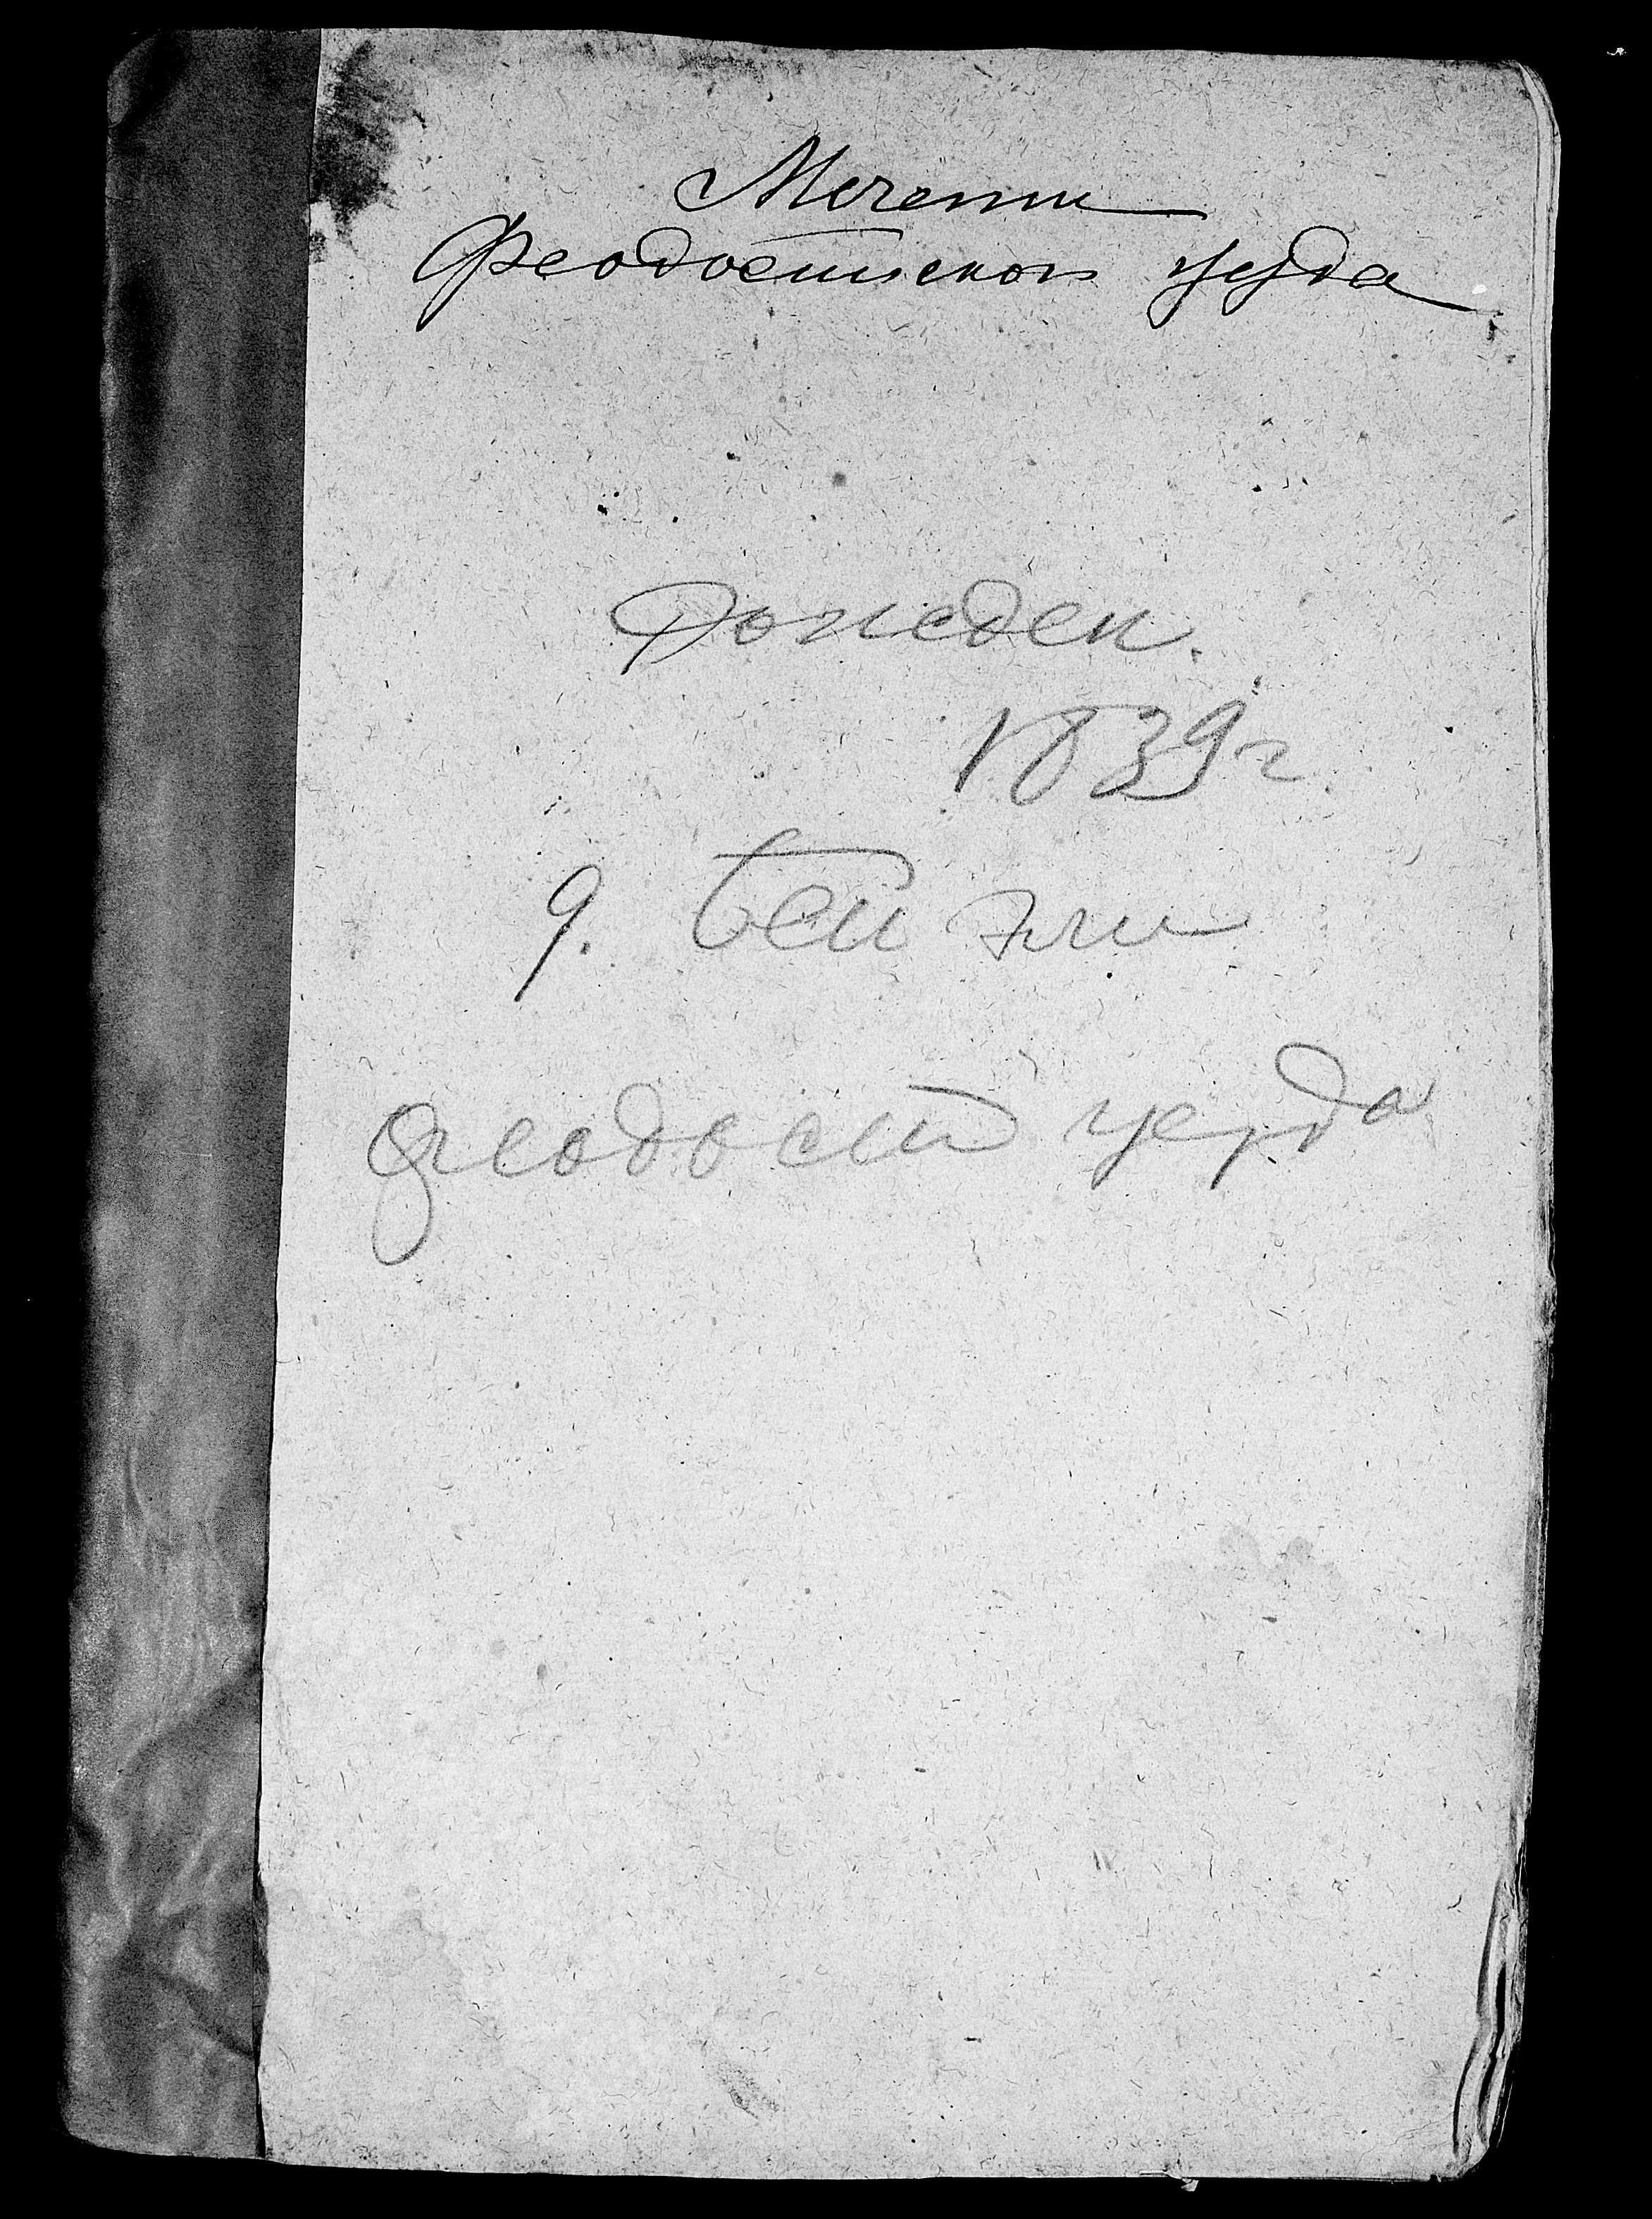 Мечети
Феодосийского уезда
Рожден.
1839 г
д. Бей эли
Феодосий уезда